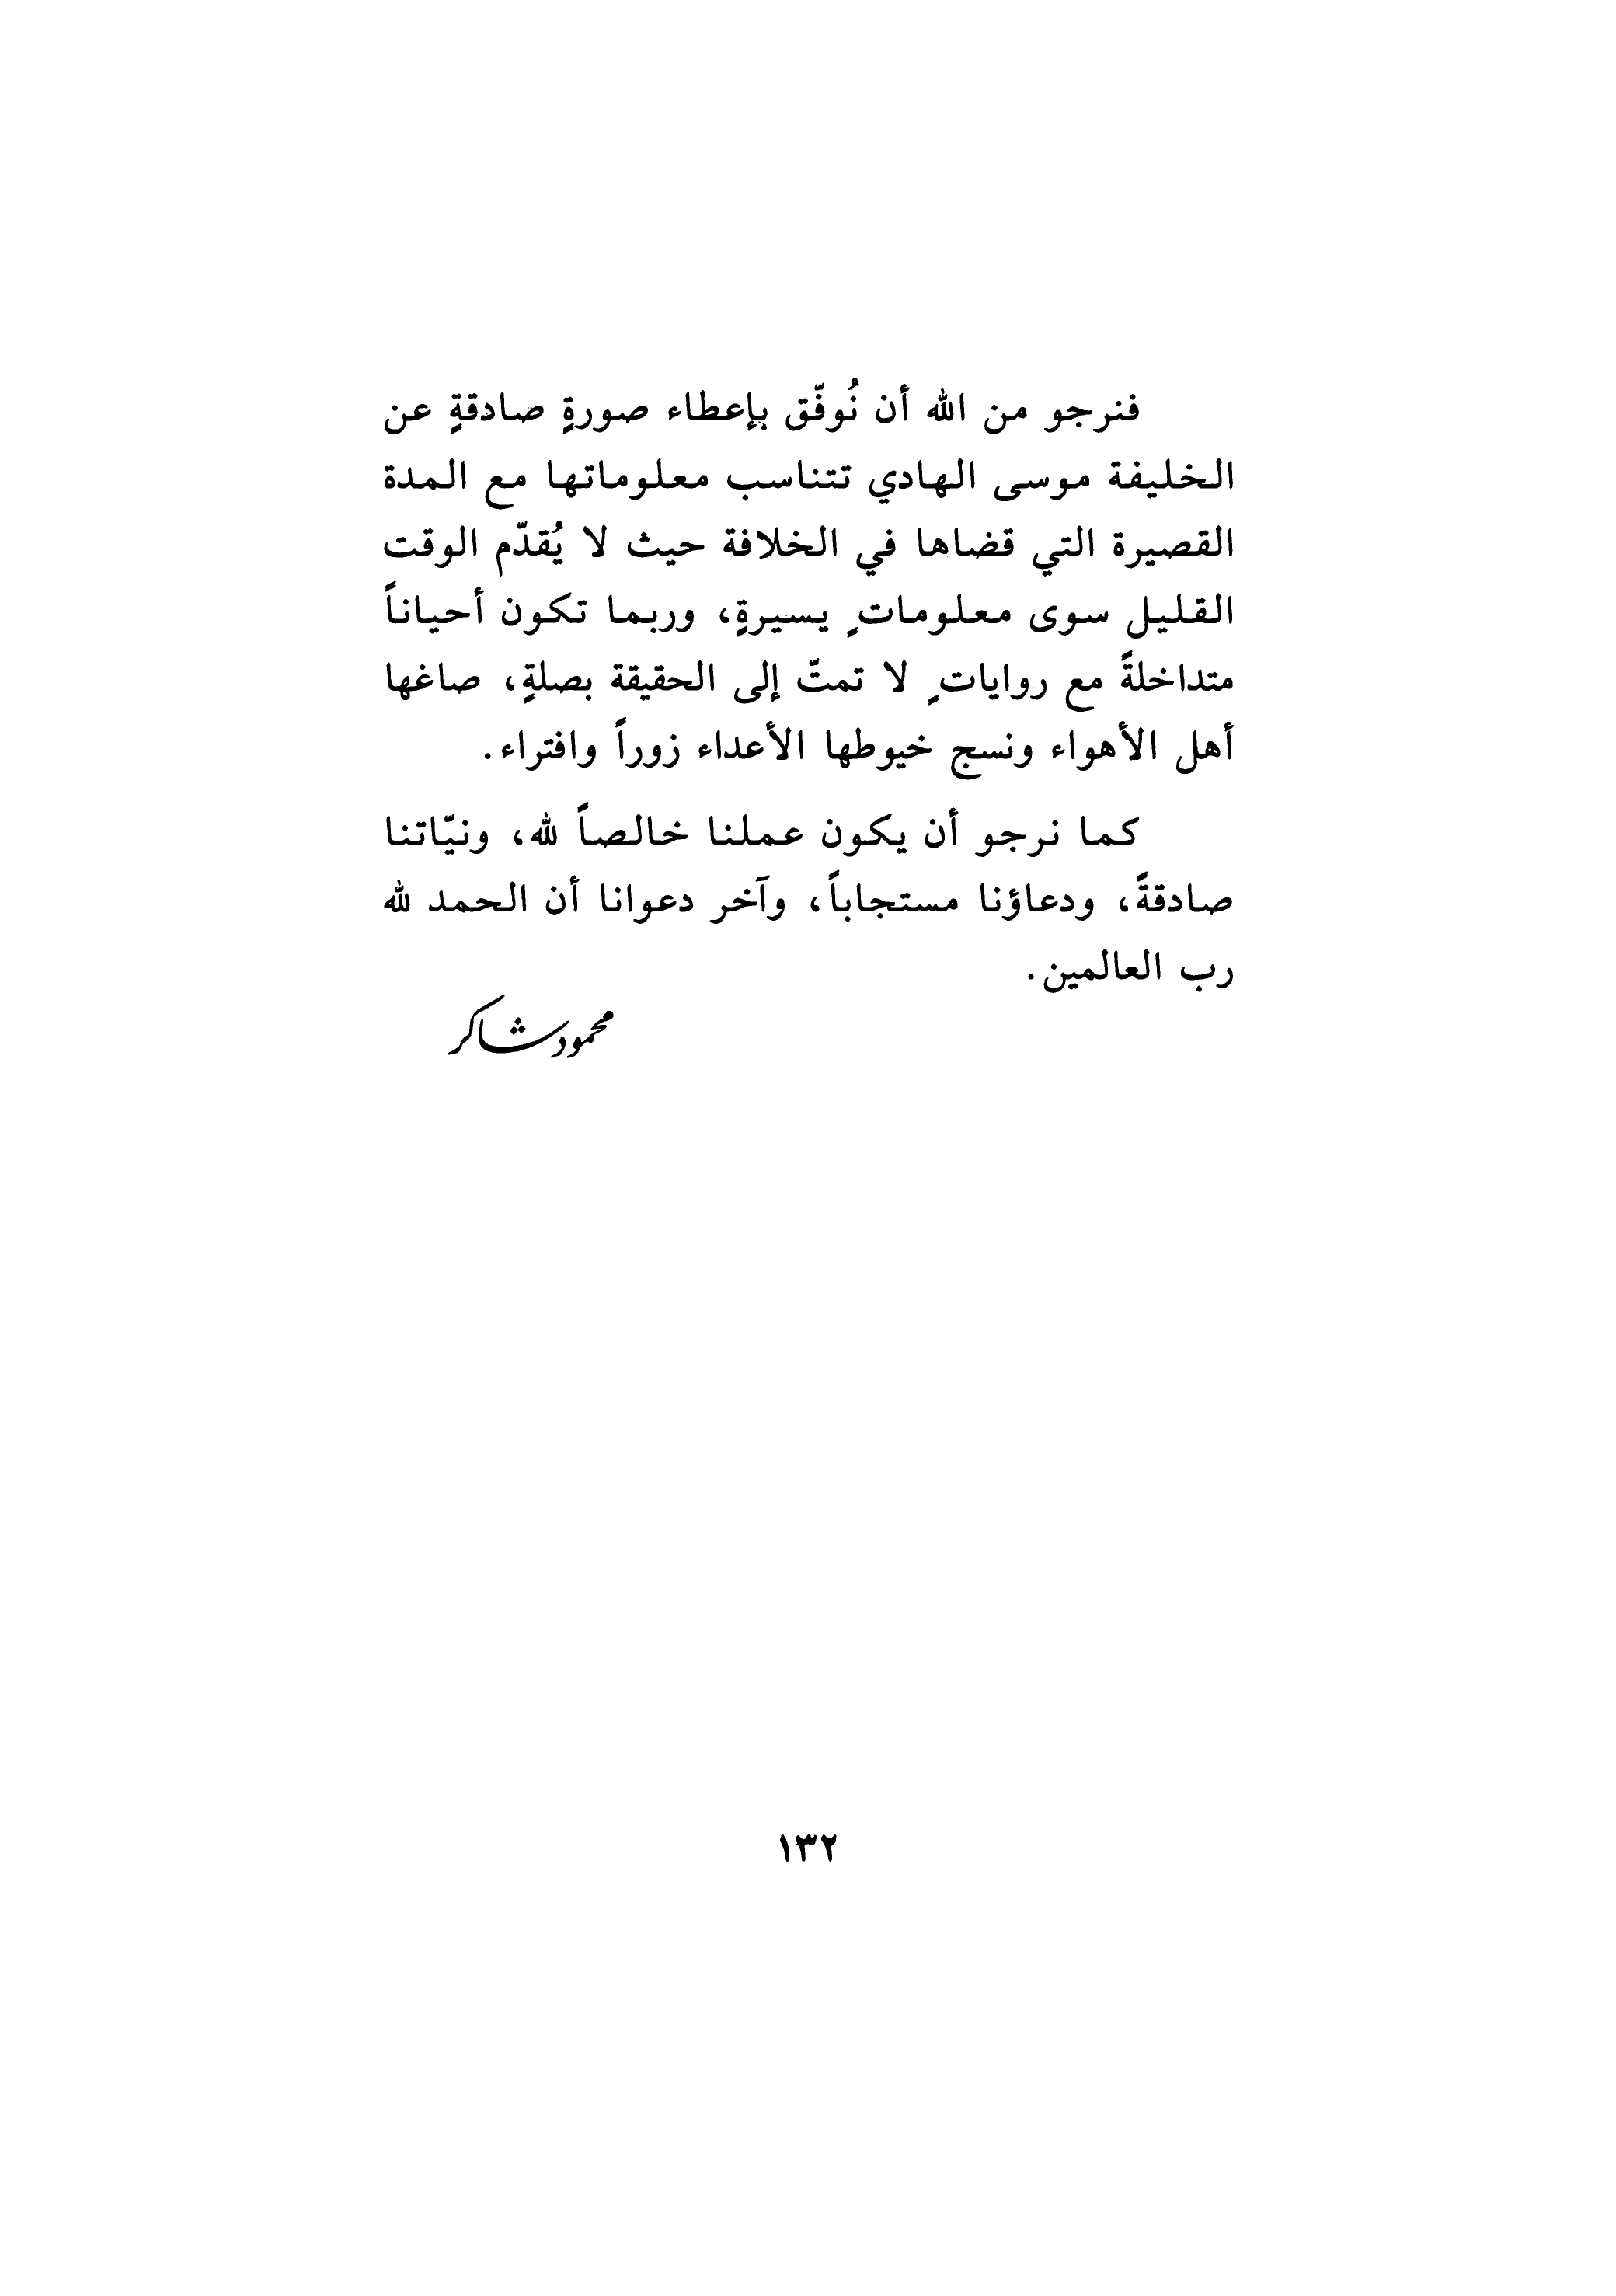 فنرجو من الله أن نُوفّق بإعطاء صورةٍ صادقةٍ عن
الخليفة موسى الهادي تتناسب معلوماتها مع المدة
القصيرة التي قضاها في الخلافة حيث لا يُقدّم الوقت
القليل سوى معلوماتٍ يسيرةٍ، وربما تكون أحياناً
متداخلةً مع رواياتٍ لا تمتّ إلى الحقيقة بصلةٍ، صاغها
أهل الأهواء ونسج خيوطها الأعداء زوراً وافتراء.
كما نرجو أن يكون عملنا خالصاً لله، ونيّاتنا
صادقةً، ودعاؤنا مستجاباً، وآخر دعوانا أن الحمد لله
رب العالمين.
محمود شاكر
١٣٢